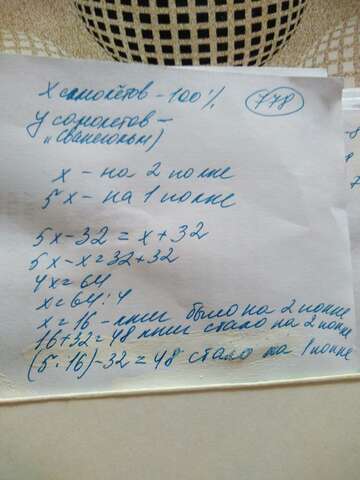 X самолётов - 100%
778
У самолетов -
х - на 2 полке
5х - на 1 полке
5х-32 = х+32
5х-х=32+32
4х=64
х=64:4
х=16 - книг было на 2 полке
16+32=48 книг стало на 2 полке
(5·16)-32=48 стало на 1 полке